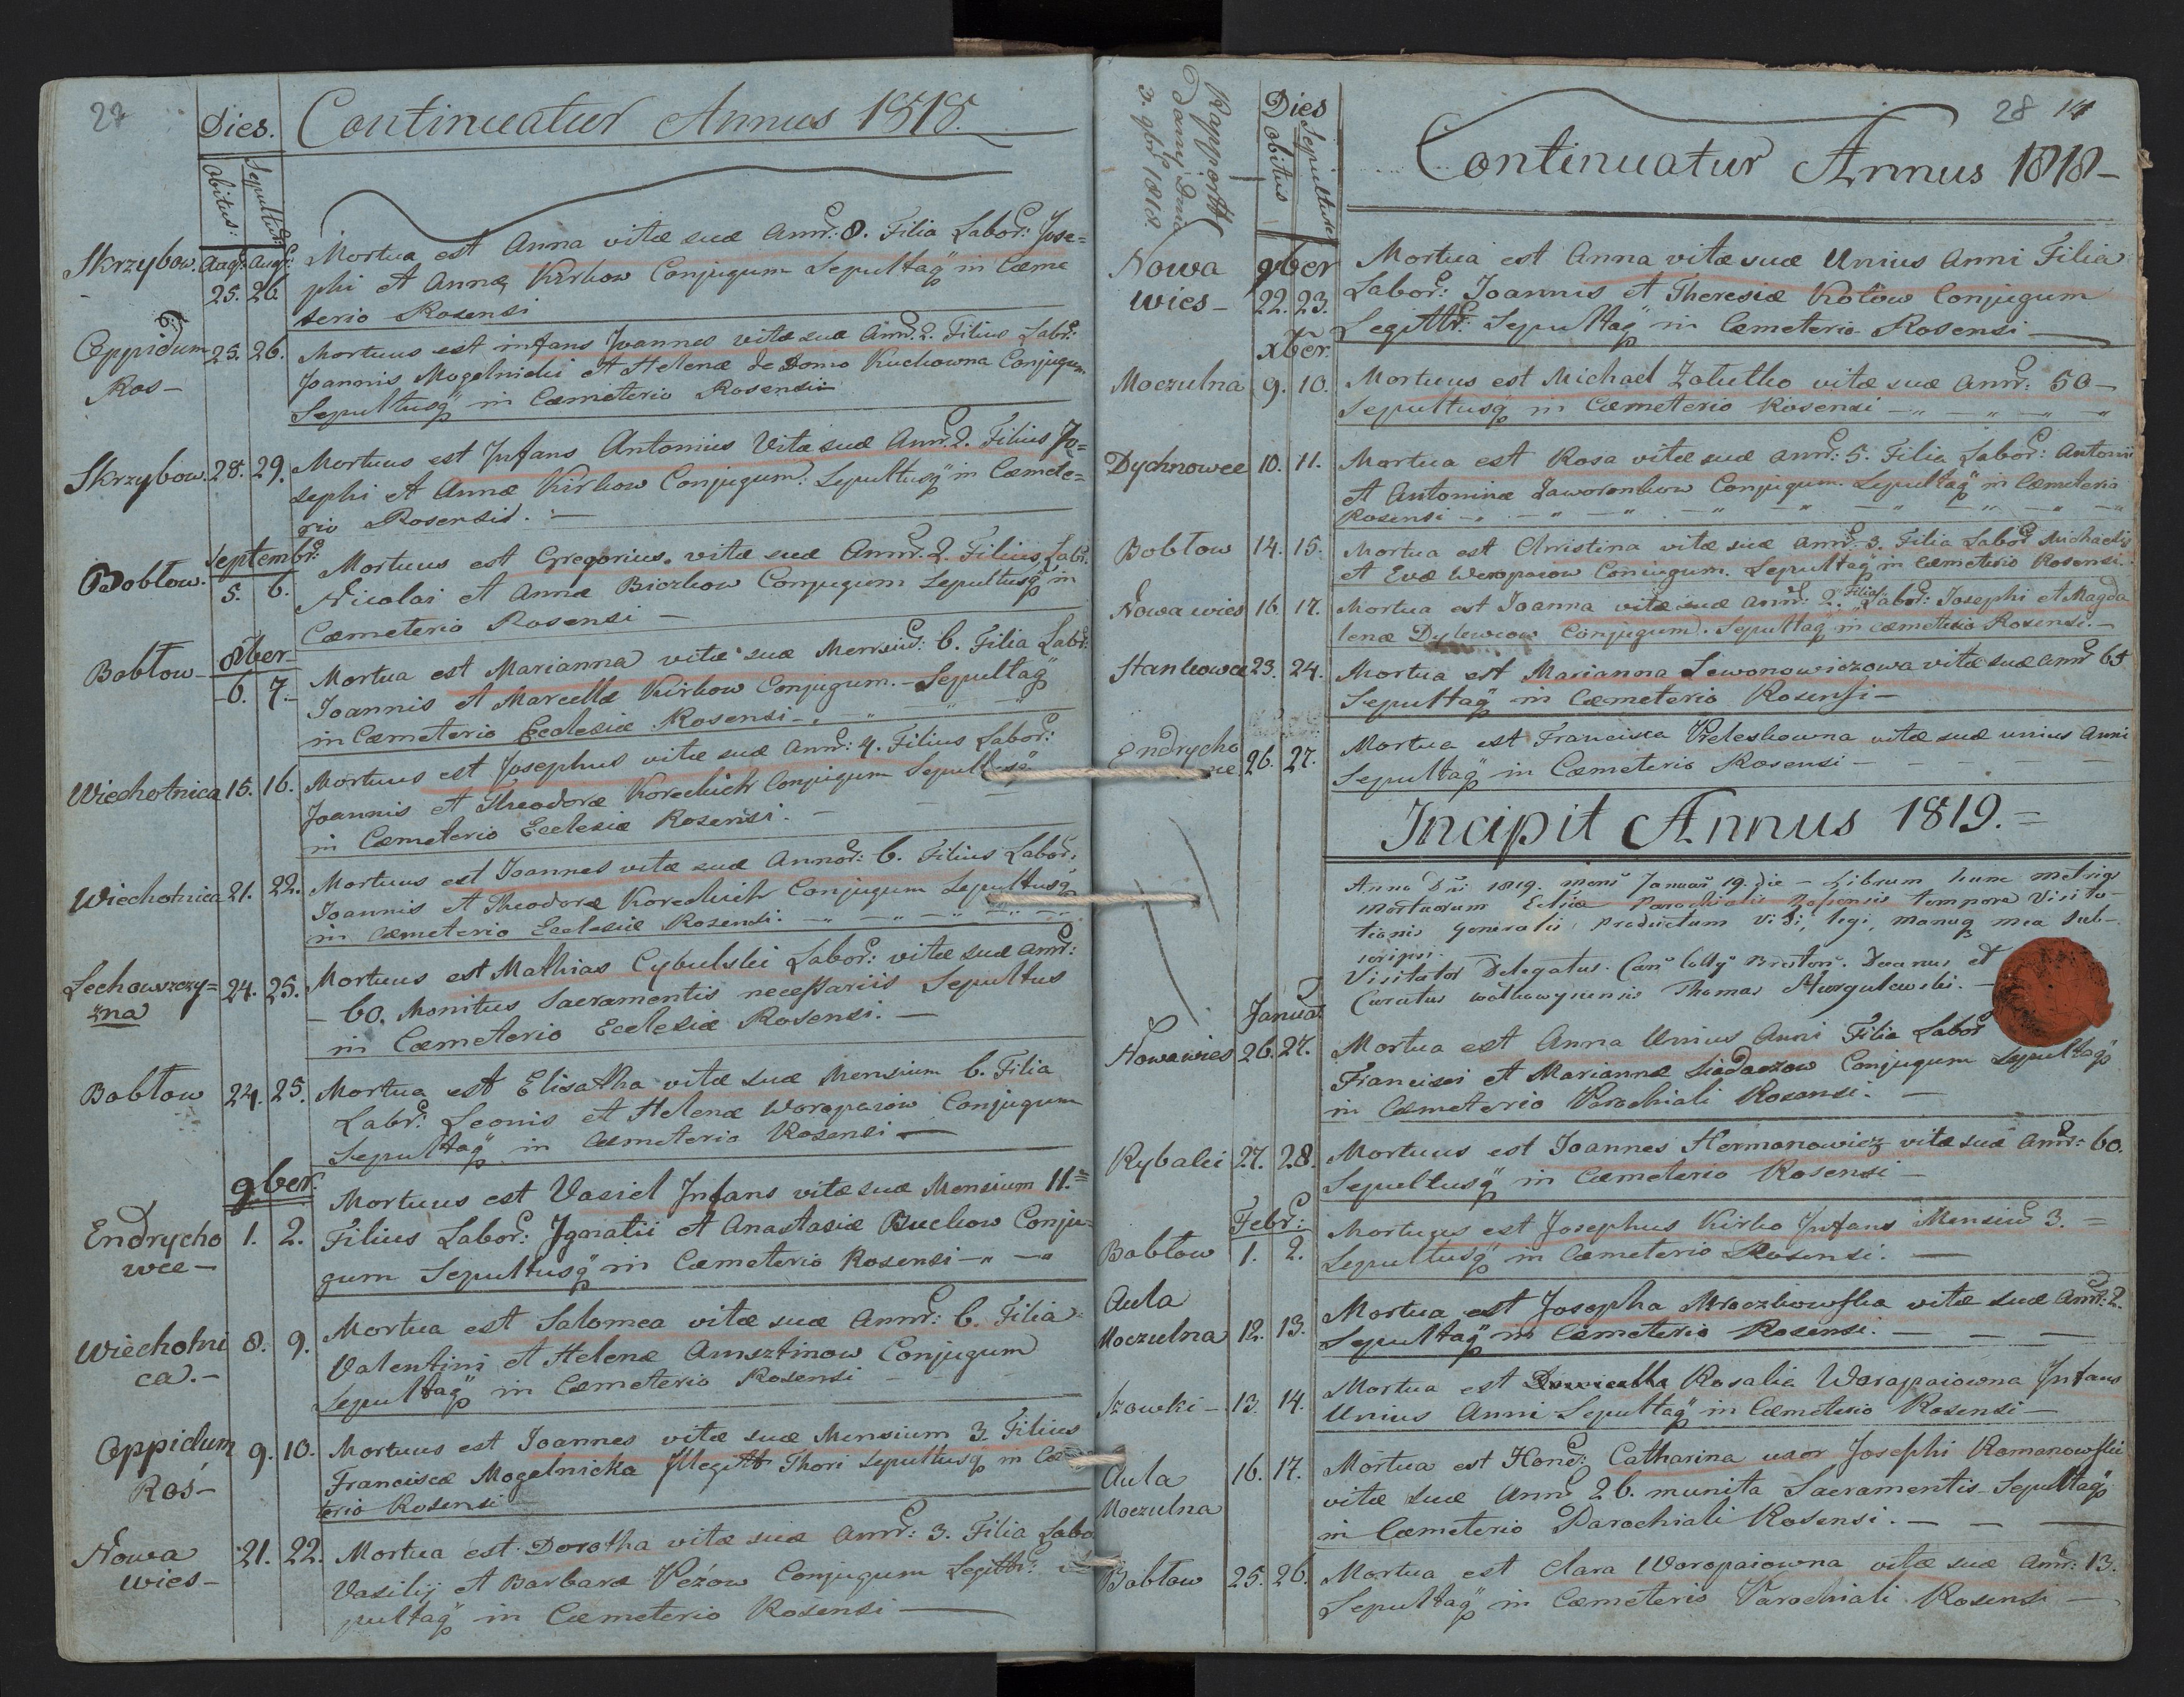 27
Dies. Continuatur Annus 1818.
Obitus: Sepultur:
Skrzybow. Aug: Aug: Mortua est Anna vitæ suæ Annr: 8. Filia Labor: Jose=
25. 26. phi et Annæ Kirkow Conjugum Sepultaq in Cæme
terio Rosensi
Oppidum 25. 26. Mortuus est infans Joannes vitæ suæ Annr: 2. Filius Labr:
Ros- Joannis Mogelnicki et Helenæ de Domo Kuchowna Conjugum
Sepultusq in Cæmeterio Rosensi
Skrzybow. 28. 29. Mortuus est Infans Antonius Vitæ suæ Annr: 2. Filius Jo=
sephi et Annæ Kirkow Conjugum: Sepultusq in Cæmete=
rio Rosensis. -
Septembr:
Bobłow. 5. 6. Mortuus est Gregorius vitæ suæ Annr: 2. Filius Labr:
Nicolai et Annæ Biczkow Conjugum Sepultusq in
Cæmeterio Rosensi -
8ber-
Bobłow- 6. 7.- Mortua est Marianna vitæ suæ Mensiu: 6. Filia Labr:
Joannis et Marcellæ Kirkow Conjugum. - Sepultaq
in Cæmeterio Ecclesiæ Rosensi -
Wiechotnica 15. 16. Mortuus est Josephus vitæ suæ Annr: 4. Filius Labor:
Joannis et Theodoræ Korechich Conjugum Sepultusq
in Cæmeterio Ecclesiæ Rosensi. -
Wiechotnica 21. 22. Mortuus est Joannes vitæ suæ Annor: 6. Filius Labor:
Joannis et Theodoræ Korechich Conjugum Sepultusq
in Cæmeterio Ecclesiæ Rosensi:
Lechowszczy= 24. 25. Mortuus est Mathias Cybulski Labor: vitæ suæ Annr:
=na - 60. Monitus Sacramentis necessariis Sepultus
in Cæmeterio Ecclesiæ Rosensi. -
Bobłow 24. 25. Mortua est Elisatha vitæ suæ Mensium 6. Filia
Labr: Leonis et Helenæ Woropaiow Conjugum
Sepultaq in Cæmeterio Rosensi -
9ber.
Endrycho 1. 2. Mortuus est Vasiel Infans vitæ suæ Mensium 11.=
wce- Filius Labor: Ignatii et Anastasiæ Buckow Conju=
gum Sepultusq in Cæmeterio Rosensi -
Wiechotni 8. 9. Mortua est Salomea vitæ suæ Annr: 6. Filia
ca.- Valentini et Helenæ Amsztinow Conjugum
Sepultaq in Cæmeterio Rosensi
Oppidum 9. 10. Mortuus est Joannes vitæ suæ Mensium 3. Filius
Ros- Franciscæ Mogelnicka Illegitt Thori Sepultusq in Cæ
terio Rosensi
Nowa 21. 22. Mortua est Dorotha vitæ suæ Annr: 3. Filia Labo
wies- Vasilij et Barbaræ Pezow Conjugum Legittr:
pultaq in Cæmeterio Rosensi -
Rapportt
dany
3. 9br 1818.
28 14
Dies
Obitus Sepulturæ
Continuatur Annus 1818-
Nowa 9ber Mortua est Anna vitæ suæ Unius Anni Filia
wies- 22. 23. Labor: Joannis et Theresiæ Kotow Conjugum
Legittr: Sepultaq in Cæmeterio Rosensi -
xber.
Moczulna 9. 10. Mortuus est Michael Zatutko vitæ suæ Annr: 50-
Sepultusq in Cæmeterio Rosensi -
Dychnowce 10. 11. Mortua est Rosa vitæ suæ annr: 5. Filia Labor: Antonii
et Antoninæ Jaworonkow Conjugum. Sepultaq in Cæmeterio
Rosensi -
Bobłow 14. 15. Mortua est Christina vitæ suæ Annr: 3. Filia Labor Michaelis
et Evæ Weropaiow Coniugum. Sepultaq in Cæmeterio Rosensi.
Nowawies 16. 17. Mortua est Joanna vitæ suæ Annr: 2. Filia Labor: Josephi et Magda
lenæ Dylewcow Conjugum. Sepultaq in Cæmeterio Rosensi. -
Stankowce 23. 24. Mortua est Marianna Lewonowiczowa vitæ suæ annr 65
Sepultaq in Cæmeterio Rosensi -
Endrycho 26. 27. Mortua est Francisca Vieleskowna vitæ suæ unius Anni
Sepultaq in Cæmeterio Rosensi -
Incipit Annus 1819.=
Anno Dni 1819. mens Januar 19. die - Librum hunc metrices
mortuorum Ecliæ Parochialis Rosensis tempore Visita-
tionis Generalis, Productum vidi, legi, manuq mea sub-
scripsi.
Visitator Delegatus. Decanus et
Curatus Wołkowyscensis Thomas
Januar
Nowawies 26. 27. Mortua est Anna Unius Anni Filia Labor
Francisci et Mariannæ Siedaczow Conjugum Sepultaq
in Cæmeterio Parochiali Rosensi. -
Rybaki 27. 28. Mortuus est Joannes Hermanowicz vitæ suæ Annr: 60.
Sepultusq in Cæmeterio Rosensi -
Febr:
Bobłow 1. 2. Mortuus est Josephus Kirko Infans Mensiu 3. =
Sepultusq in Cæmeterio Rosensi. -
Aula
Moczulna 12. 13. Mortua est Josepha Mroczkowska vitæ suæ Annr: 2.
Sepultaq in Cæmeterio Rosensi. -
Szowki - 13. 14. Mortua est Rosalia Woropaiowna Infans
Unius Anni Sepultaq in Cæmeterio Rosensi -
Aula 16. 17. Mortua est Hond: Catharina uxor Josephi Romanowski
Moczulna vitæ suæ Annr 26. munita Sacramentis Sepultaq
in Cæmeterio Parochiali Rosensi. -
Bobłow 25. 26. Mortua est Clara Woropaiowna vitæ suæ Annr: 13.
Sepultaq in Cæmeterio Parochiali Rosensi -